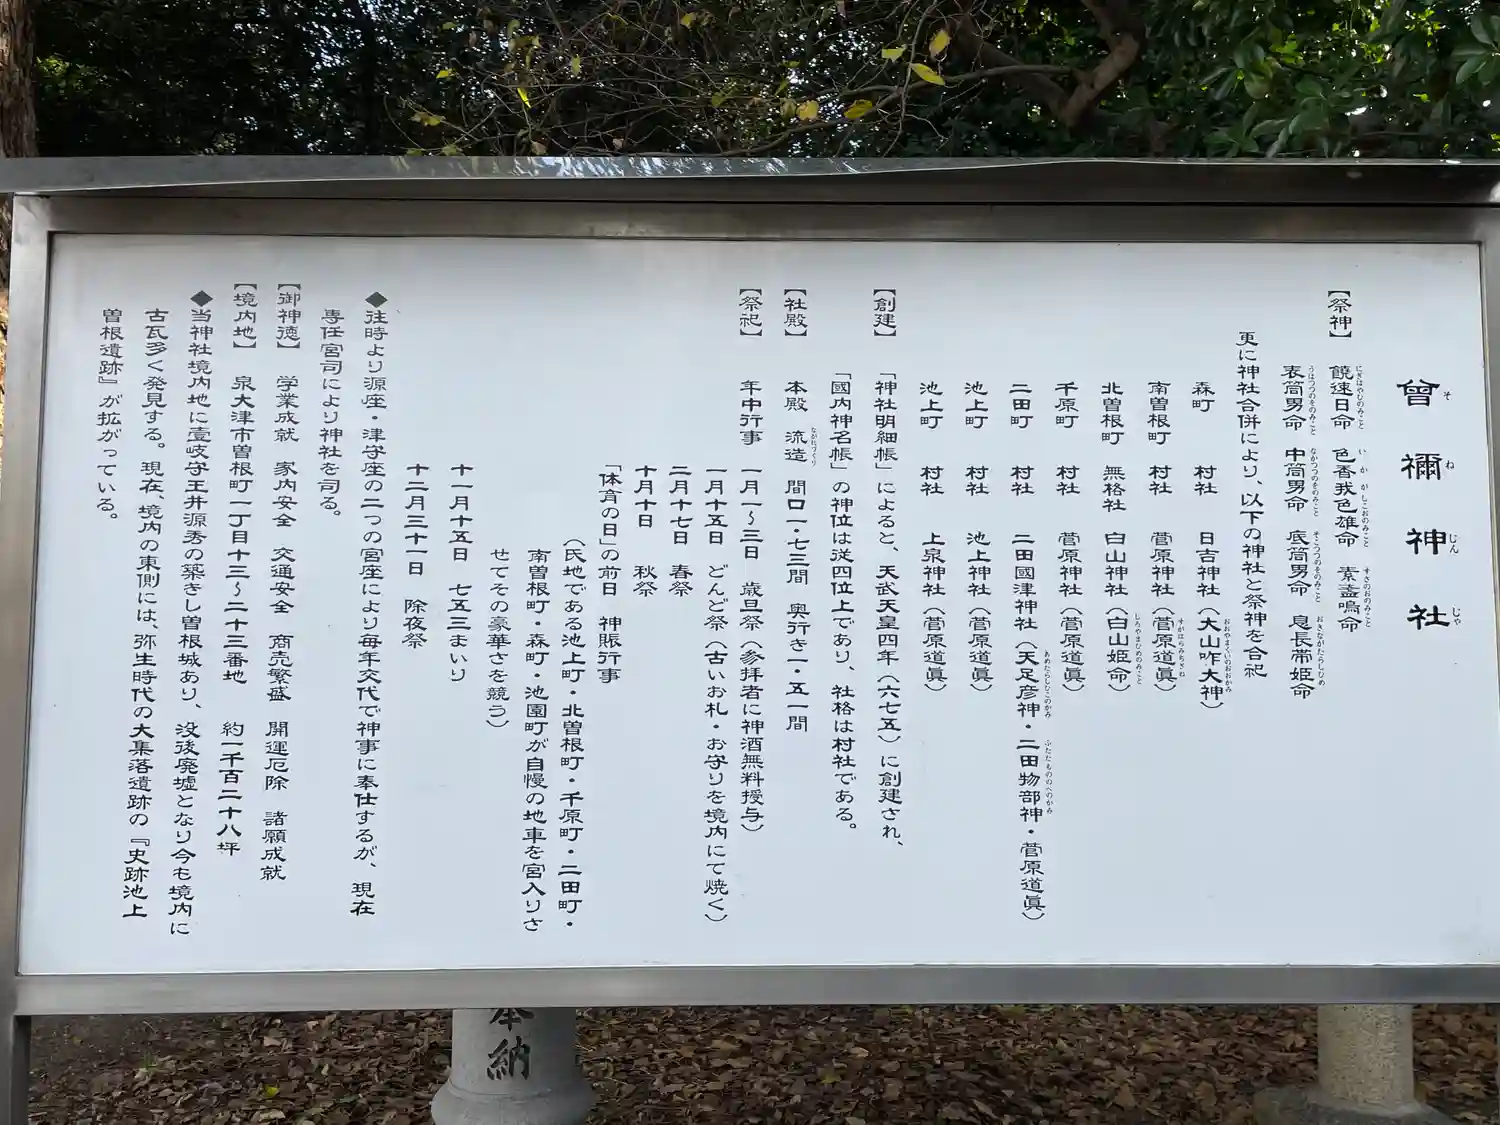 曾禰神社
そねじんじゃ
【祭神】 饒速日命 色香我色雄命 素盞嗚命
にぎはやひのみこと いかがしこおのみこと すさのおのみこと
表筒男命 中筒男命 底筒男命 息長帯姫命
うはつつのをのみこと なかつつのをのみこと そこつつのをのみこと おきながたらしひめ
更に神社合併により、以下の神社と祭神を合祀
森町 村社 日吉神社(大山咋大神)
おおやまくいのおおかみ
南曽根町 村社 菅原神社(菅原道眞)
すがはらみちざね
北曽根町 無格社 白山神社(白山姫命)
しろやまひめのみこと
千原町 村社 菅原神社(菅原道眞)
二田町 村社 二田國津神社(天足彦神・二田物部神・菅原道眞)
あめたらしひこのかみ ふたたもののべのかみ
池上町 村社 池上神社(菅原道眞)
池上町 村社 上泉神社(菅原道眞)
【創建】 「神社明細帳」によると、天武天皇四年(六七五)に創建され、
「國内神名帳」の神位は従四位上であり、社格は村社である。
【社殿】 本殿 流造 間口一・七三間 奥行き一・五一間
ながれづくり
【祭祀】 年中行事 一月一~三日 歳旦祭(参拝者に神酒無料授与)
一月十五日 どんど祭(古いお札・お守りを境内にて焼く)
二月十七日 春祭
十月十日 秋祭
「体育の日」の前日 神賑行事
(氏地である池上町・北曽根町・千原町・二田町・
南曽根町・森町・池園町が自慢の地車を宮入りさ
せてその豪華さを競う)
十一月十五日 七五三まいり
十二月三十一日 除夜祭
◆往時より源座・津守座の二つの宮座により毎年交代で神事に奉仕するが、現在
専任宮司により神社を司る。
【御神徳】 学業成就 家内安全 交通安全 商売繁盛 開運厄除 諸願成就
【境内地】 泉大津市曽根町一丁目十三~二十三番地 約一千百二十八坪
◆当神社境内地に壹岐守王井源秀の築きし曽根城あり、没後廃墟となり今も境内に
古瓦多く発見する。現在、境内の東側には、弥生時代の大集落遺跡の『史跡池上
曽根遺跡』が拡がっている。
奉納